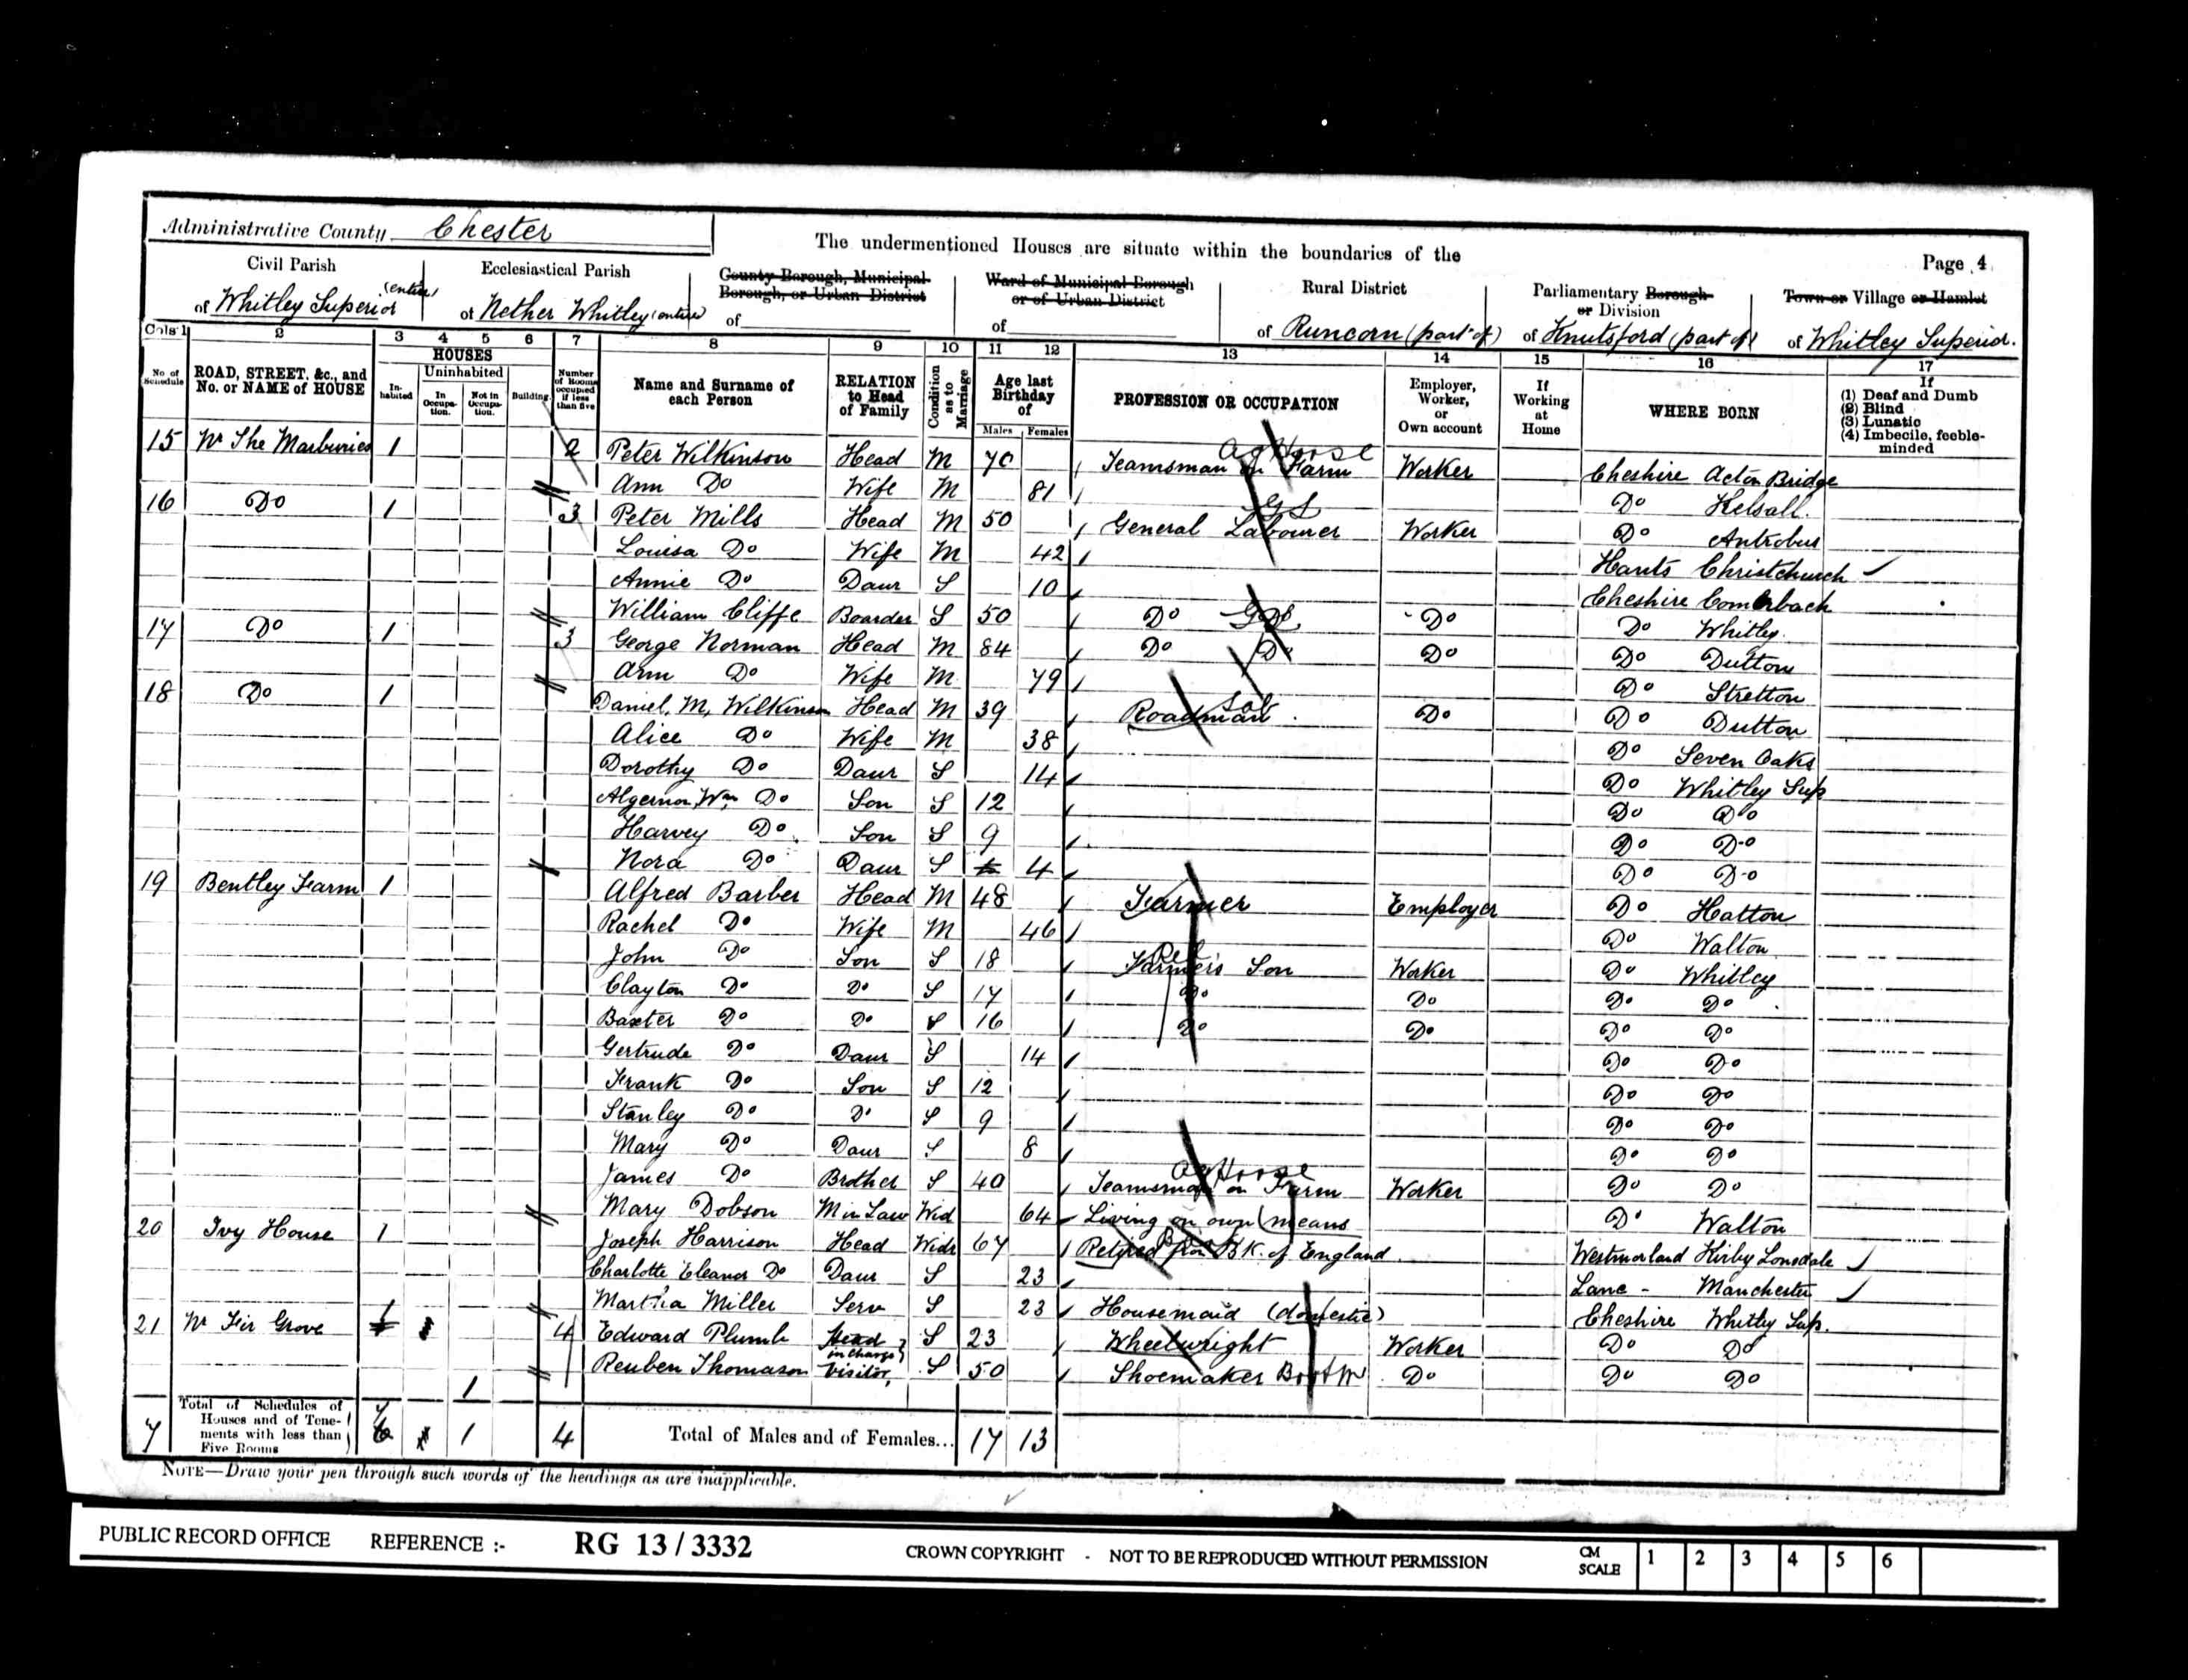 Administrative County Chester
The undermentioned Houses are situate within the boundaries of the
Page 4
Civil Parish of Whitley Superior (entire)
Ecclesiastical Parish of Nether Whitley (entire)
County Borough, Municipal Borough, or Urban District of
Ward of Municipal Borough or of Urban District of
Rural District of Runcorn (part of)
Parliamentary Borough or Division of Knutsford (part of)
Town or Village or Hamlet of Whitley Superior.
Cols 1 2 3 4 5 6 7 8 9 10 11 12 13 14 15 16 17
No. of Schedule
ROAD, STREET, &c., and No. or NAME of HOUSE
HOUSES
In-habited
Uninhabited
In Occupa-tion.
Not in Occupa-tion.
Building.
Number of Rooms occupied if less than five
Name and Surname of each Person
RELATION to Head of Family
Condition as to Marriage
Age last Birthday of
Males Females
PROFESSION OR OCCUPATION
Employer, Worker, or Own account
If Working at Home
WHERE BORN
If (1) Deaf and Dumb (2) Blind (3) Lunatic (4) Imbecile, feeble-minded
15 Nr The Marburies 1 2 Peter Wilkinson Head M 70 Teamsman on Farm Ag Horse Worker Cheshire Acton Bridge
Ann Do Wife M 81 Do Kelsall.
16 Do 1 3 Peter Mills Head M 50 General Labourer G L Worker Do Antrobus
Louisa Do Wife M 42 Hants Christchurch
Annie Do Daur S 10 Cheshire Comberbach
William Cliffe Boarder S 50 Do Do Do Whitley
17 Do 1 3 George Norman Head M 84 Do Do Do Do Dutton
Ann Do Wife M 79 Do Stretton
18 Do 1 Daniel. M. Wilkinson Head M 39 Roadman Do Do Dutton
Alice Do Wife M 38 Do Seven Oaks
Dorothy Do Daur S 14 Do Whitley Sup
Algernon Wm Do Son S 12 Do Do
Harvey Do Son S 9 Do Do
Nora Do Daur S 4 Do Do
19 Bentley Farm 1 Alfred Barber Head M 48 Farmer Employer Do Hatton
Rachel Do Wife M 46 Do Walton
John Do Son S 18 Farmer's Son Rel Worker Do Whitley
Clayton Do Do S 17 Do Do Do Do
Baxter Do Do S 16 Do Do Do Do
Gertrude Do Daur S 14 Do Do
Frank Do Son S 12 Do Do
Stanley Do Do S 9 Do Do
Mary Do Daur S 8 Do Do
James Do Brother S 40 Teamsman on Farm Ag Horse Worker Do Do
Mary Dobson M in Law Wid 64 Living on own means Do Walton
20 Ivy House 1 Joseph Harrison Head Widr 67 Retired from BK. of England Westmorland Kirby Lonsdale
Charlotte Eleanor Do Daur S 23 Lanc - Manchester
Martha Miller Serv S 23 Housemaid (domestic) Cheshire Whitley Sup.
21 Nr Fir Grove 1 4 Edward Plumb Head in charge S 23 Wheelwright Worker Do Do
Reuben Thomason Visitor, S 50 Shoemaker Boot M Do Do Do
1
7 Total of Schedules of Houses and of Tene-ments with less than Five Rooms 7 6 1 4 Total of Males and of Females... 17 13
NOTE—Draw your pen through such words of the headings as are inapplicable.
PUBLIC RECORD OFFICE REFERENCE :- RG 13 / 3332 CROWN COPYRIGHT - NOT TO BE REPRODUCED WITHOUT PERMISSION CM SCALE 1 2 3 4 5 6